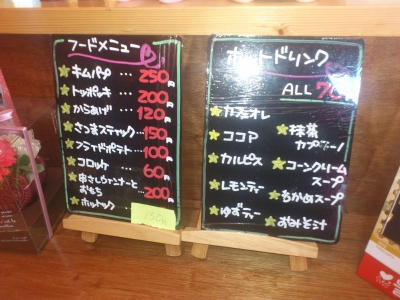 フードメニュー
キムパプ … 250円
トッポッキ … 200円
からあげ … 120円
さつまスティック … 150円
フライドポテト … 100円
コロッケ … 60円
串さしウィンナーと
おもち … 200円
ホットック
150円
ホットドリンク
ALL
カフェオレ
ココア
カルピス
レモンティー
ゆずティー
抹茶
カプチーノ
コーンクリーム
スープ
わかめスープ
おみそ汁